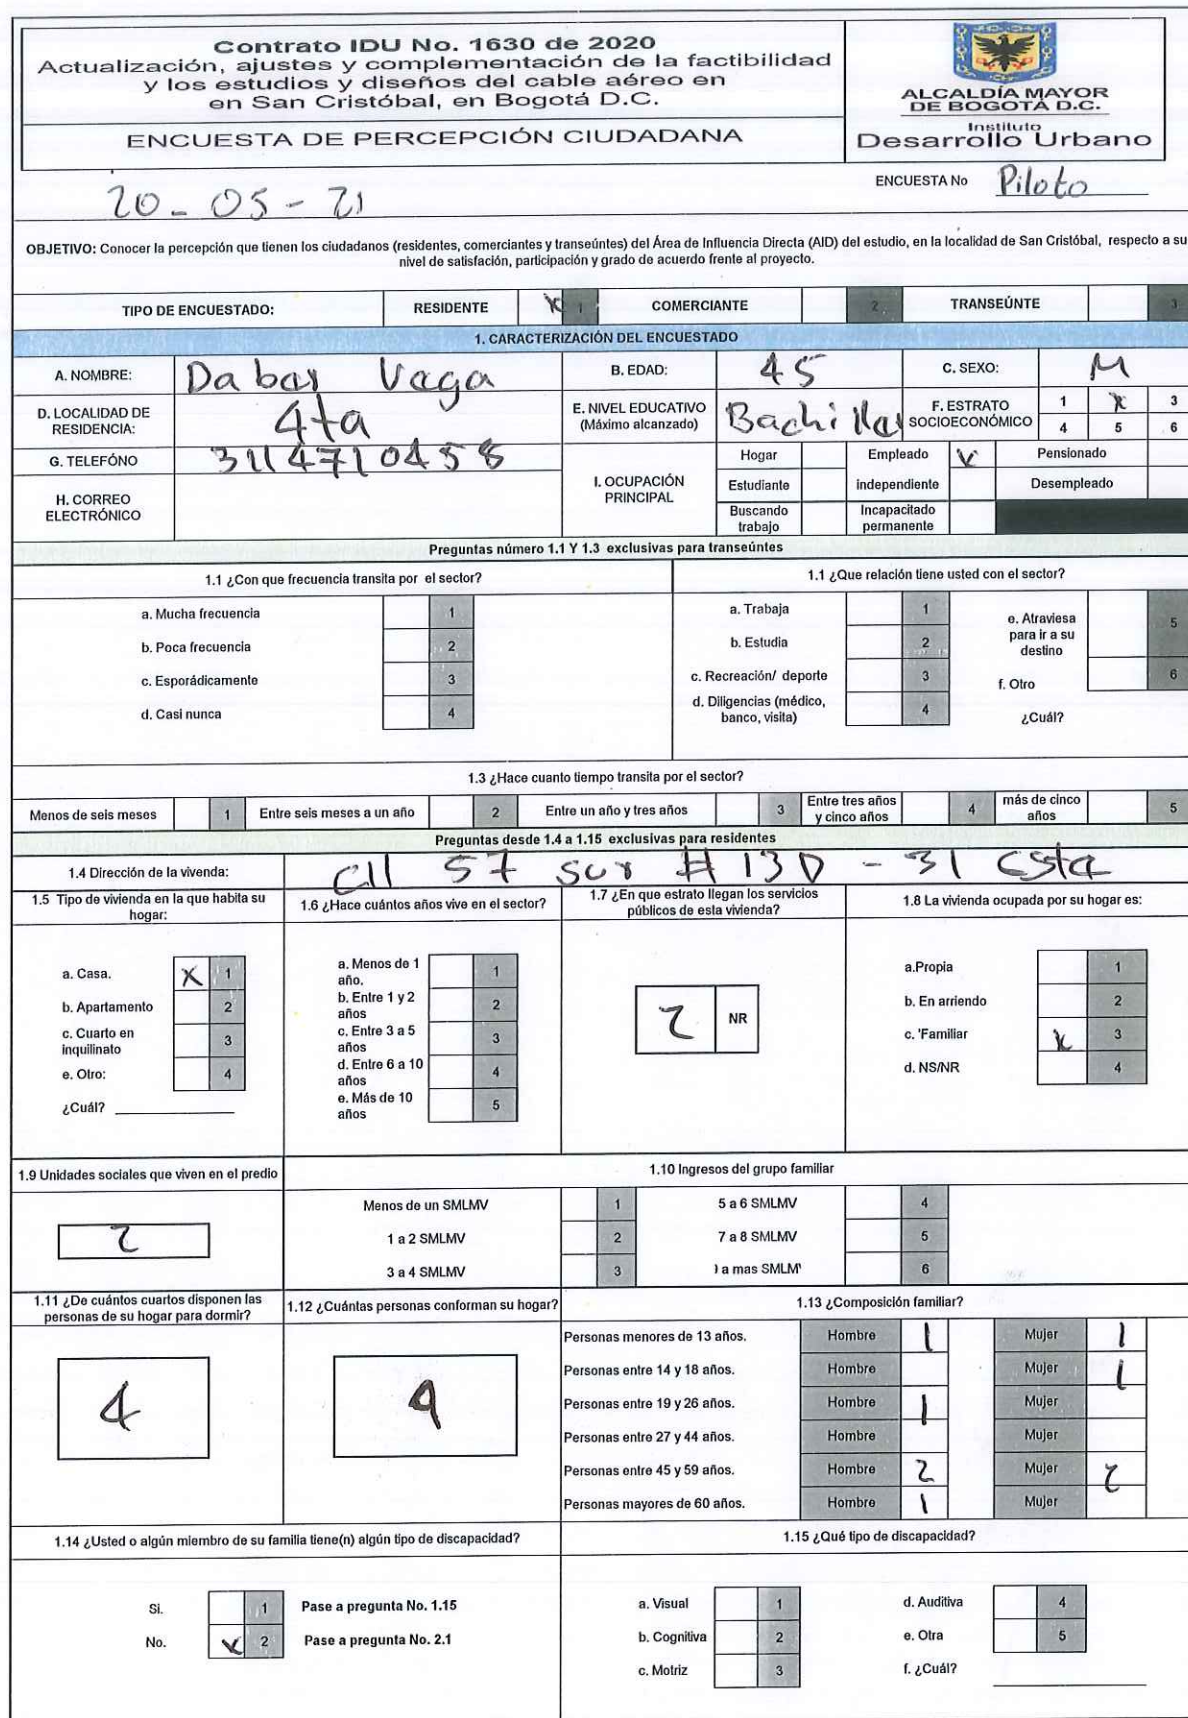 Contrato IDU No. 1630 de 2020
Actualización, ajustes y complementación de la factibilidad
y los estudios y diseños del cable aéreo en
en San Cristóbal, en Bogotá D.C.
ENCUESTA DE PERCEPCIÓN CIUDADANA
ALCALDÍA MAYOR
DE BOGOTÁ D.C.
Instituto
Desarrollo Urbano
ENCUESTA No Piloto
20 - 05 - 21
OBJETIVO: Conocer la percepción que tienen los ciudadanos (residentes, comerciantes y transeúntes) del Área de Influencia Directa (AID) del estudio, en la localidad de San Cristóbal, respecto a su
nivel de satisfacción, participación y grado de acuerdo frente al proyecto.
TIPO DE ENCUESTADO: RESIDENTE X 1 COMERCIANTE 2 TRANSEÚNTE 3
1. CARACTERIZACIÓN DEL ENCUESTADO
A. NOMBRE: Vega B. EDAD: 45 C. SEXO: M
D. LOCALIDAD DE
RESIDENCIA: 4ta
E. NIVEL EDUCATIVO
(Máximo alcanzado) Bachiller
F. ESTRATO
SOCIOECONÓMICO
1 X 3
4 5 6
G. TELEFÓNO 3114710458
H. CORREO
ELECTRÓNICO
I. OCUPACIÓN
PRINCIPAL
Hogar Empleado X Pensionado
Estudiante independiente Desempleado
Buscando
trabajo
Incapacitado
permanente
Preguntas número 1.1 Y 1.3 exclusivas para transeúntes
1.1 ¿Con que frecuencia transita por el sector?
a. Mucha frecuencia 1
b. Poca frecuencia 2
c. Esporádicamente 3
d. Casi nunca 4
1.1 ¿Que relación tiene usted con el sector?
a. Trabaja 1
b. Estudia 2
c. Recreación/ deporte 3
d. Diligencias (médico,
banco, visita) 4
e. Atraviesa
para ir a su
destino 5
f. Otro 6
¿Cuál?
1.3 ¿Hace cuanto tiempo transita por el sector?
Menos de seis meses 1 Entre seis meses a un año 2 Entre un año y tres años 3 Entre tres años
y cinco años 4 más de cinco
años 5
Preguntas desde 1.4 a 1.15 exclusivas para residentes
1.4 Dirección de la vivenda: Cll 57 sur # 13D - 31 Esta
1.5 Tipo de vivienda en la que habita su
hogar:
a. Casa. X 1
b. Apartamento 2
c. Cuarto en
inquilinato 3
e. Otro: 4
¿Cuál?
1.6 ¿Hace cuántos años vive en el sector?
a. Menos de 1
año. 1
b. Entre 1 y 2
años 2
c. Entre 3 a 5
años 3
d. Entre 6 a 10
años 4
e. Más de 10
años 5
1.7 ¿En que estrato llegan los servicios
públicos de esta vivienda?
2 NR
1.8 La vivienda ocupada por su hogar es:
a.Propia 1
b. En arriendo 2
c. 'Familiar X 3
d. NS/NR 4
1.9 Unidades sociales que viven en el predio
2
1.10 Ingresos del grupo familiar
Menos de un SMLMV 1 5 a 6 SMLMV 4
1 a 2 SMLMV 2 7 a 8 SMLMV 5
3 a 4 SMLMV 3 a mas SMLM 6
1.11 ¿De cuántos cuartos disponen las
personas de su hogar para dormir?
4
1.12 ¿Cuántas personas conforman su hogar?
9
1.13 ¿Composición familiar?
Personas menores de 13 años. Hombre 1 Mujer 1
Personas entre 14 y 18 años. Hombre Mujer 1
Personas entre 19 y 26 años. Hombre 1 Mujer
Personas entre 27 y 44 años. Hombre Mujer
Personas entre 45 y 59 años. Hombre 2 Mujer 2
Personas mayores de 60 años. Hombre 1 Mujer
1.14 ¿Usted o algún miembro de su familia tiene(n) algún tipo de discapacidad?
Si. 1 Pase a pregunta No. 1.15
No. X 2 Pase a pregunta No. 2.1
1.15 ¿Qué tipo de discapacidad?
a. Visual 1
b. Cognitiva 2
c. Motriz 3
d. Auditiva 4
e. Otra 5
f. ¿Cuál?